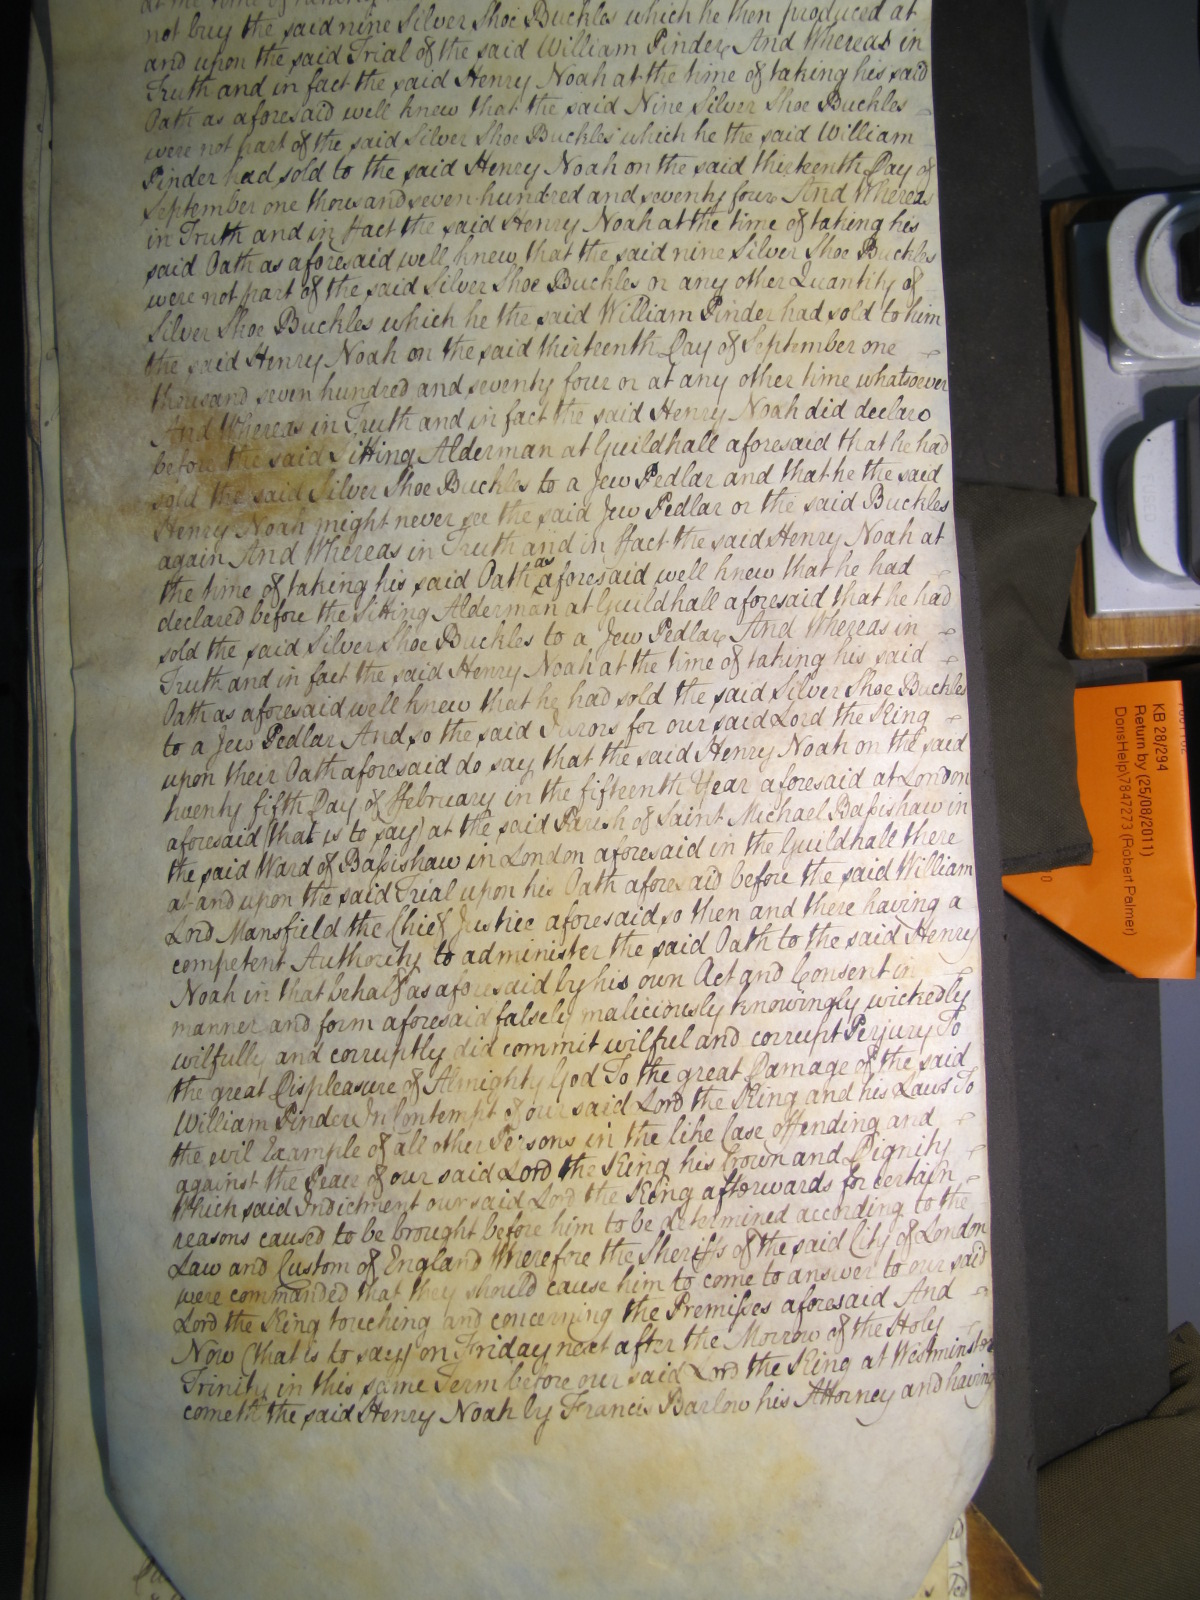 at the time of
not buy the said nine Silver Shoe Buckles which he then produced at
and upon the said Trial of the said William Pinder And Whereas in
Truth and in fact the said Henry Noah at the time of taking his said
Oath as aforesaid well knew that the said Nine Silver Shoe Buckles
were not part of the said Silver Shoe Buckles which he the said William
Pinder had sold to the said Henry Noah on the said thirteenth Day of
September one thousand seven hundred and seventy four And Whereas
in Truth and in fact the said Henry Noah at the time of taking his
said Oath as aforesaid well knew that the said nine Silver Shoe Buckles
were not part of the said Silver Shoe Buckles or any other Quantity of
Silver Shoe Buckles which he the said William Pinder had sold to him
the said Henry Noah on the said thirteenth Day of September one
thousand seven hundred and seventy four or at any other time whatsoever
And Whereas in Truth and in fact the said Henry Noah did declare
before the said Sitting Alderman at Guildhall aforesaid that he had
sold the said Silver Shoe Buckles to a Jew Pedlar and that he the said
Henry Noah might never see the said Jew Pedlar or the said Buckles
again And Whereas in Truth and in ffact the said Henry Noah at
the time of taking his said Oath as aforesaid well knew that he had
declared before the Sitting Alderman at Guildhall aforesaid that he had
sold the said Silver Shoe Buckles to a Jew Pedlar And Whereas in
Truth and in fact the said Henry Noah at the time of taking his said
Oath as aforesaid well knew that he had sold the said Silver Shoe Buckles
to a Jew Pedlar And so the said Jurors for our said Lord the King
upon their Oath aforesaid do say that the said Henry Noah on the said
twenty fifth Day of ffebruary in the fifteenth Year aforesaid at London
aforesaid (that is to say) at the said Parish of Saint Michael Baſsishaw in
the said Ward of Baſsishaw in London aforesaid in the Guildhall there
at and upon the said Trial upon his Oath aforesaid before the said William
Lord Mansfield the Chief Justice aforesaid so then and there having a
competent Authority to administer the said Oath to the said Henry
Noah in that behalf as aforesaid by his own Act and Consent in
manner and form aforesaid falsely maliciously knowingly wickedly
wilfully and corruptly did commit wilful and corrupt Perjury To
the great Displeasure of Almighty God To the great Damage of the said
William Pinder In Contempt of our said Lord the King and his Laws To
the evil Example of all other Persons in the like Case offending and
against the Peace of our said Lord the King his Crown and Dignity
Which said Indictment our said Lord the King afterwards for certain
reasons caused to be brought before him to be determined according to the
Law and Custom of England Wherefore the Sheriffs of the said City of London
were commanded that they should cause him to come to answer to our said
Lord the King touching and concerning the Premiſses aforesaid And
Now (that is to say) on Friday next after the Morrow of the Holy
Trinity in this same Term before our said Lord the King at Westminster
cometh the said Henry Noah by Francis Barlow his Attorney and having
KB 28/294
Return by (25/08/2011)
DorisHelp\7847273 (Robert Palmer)